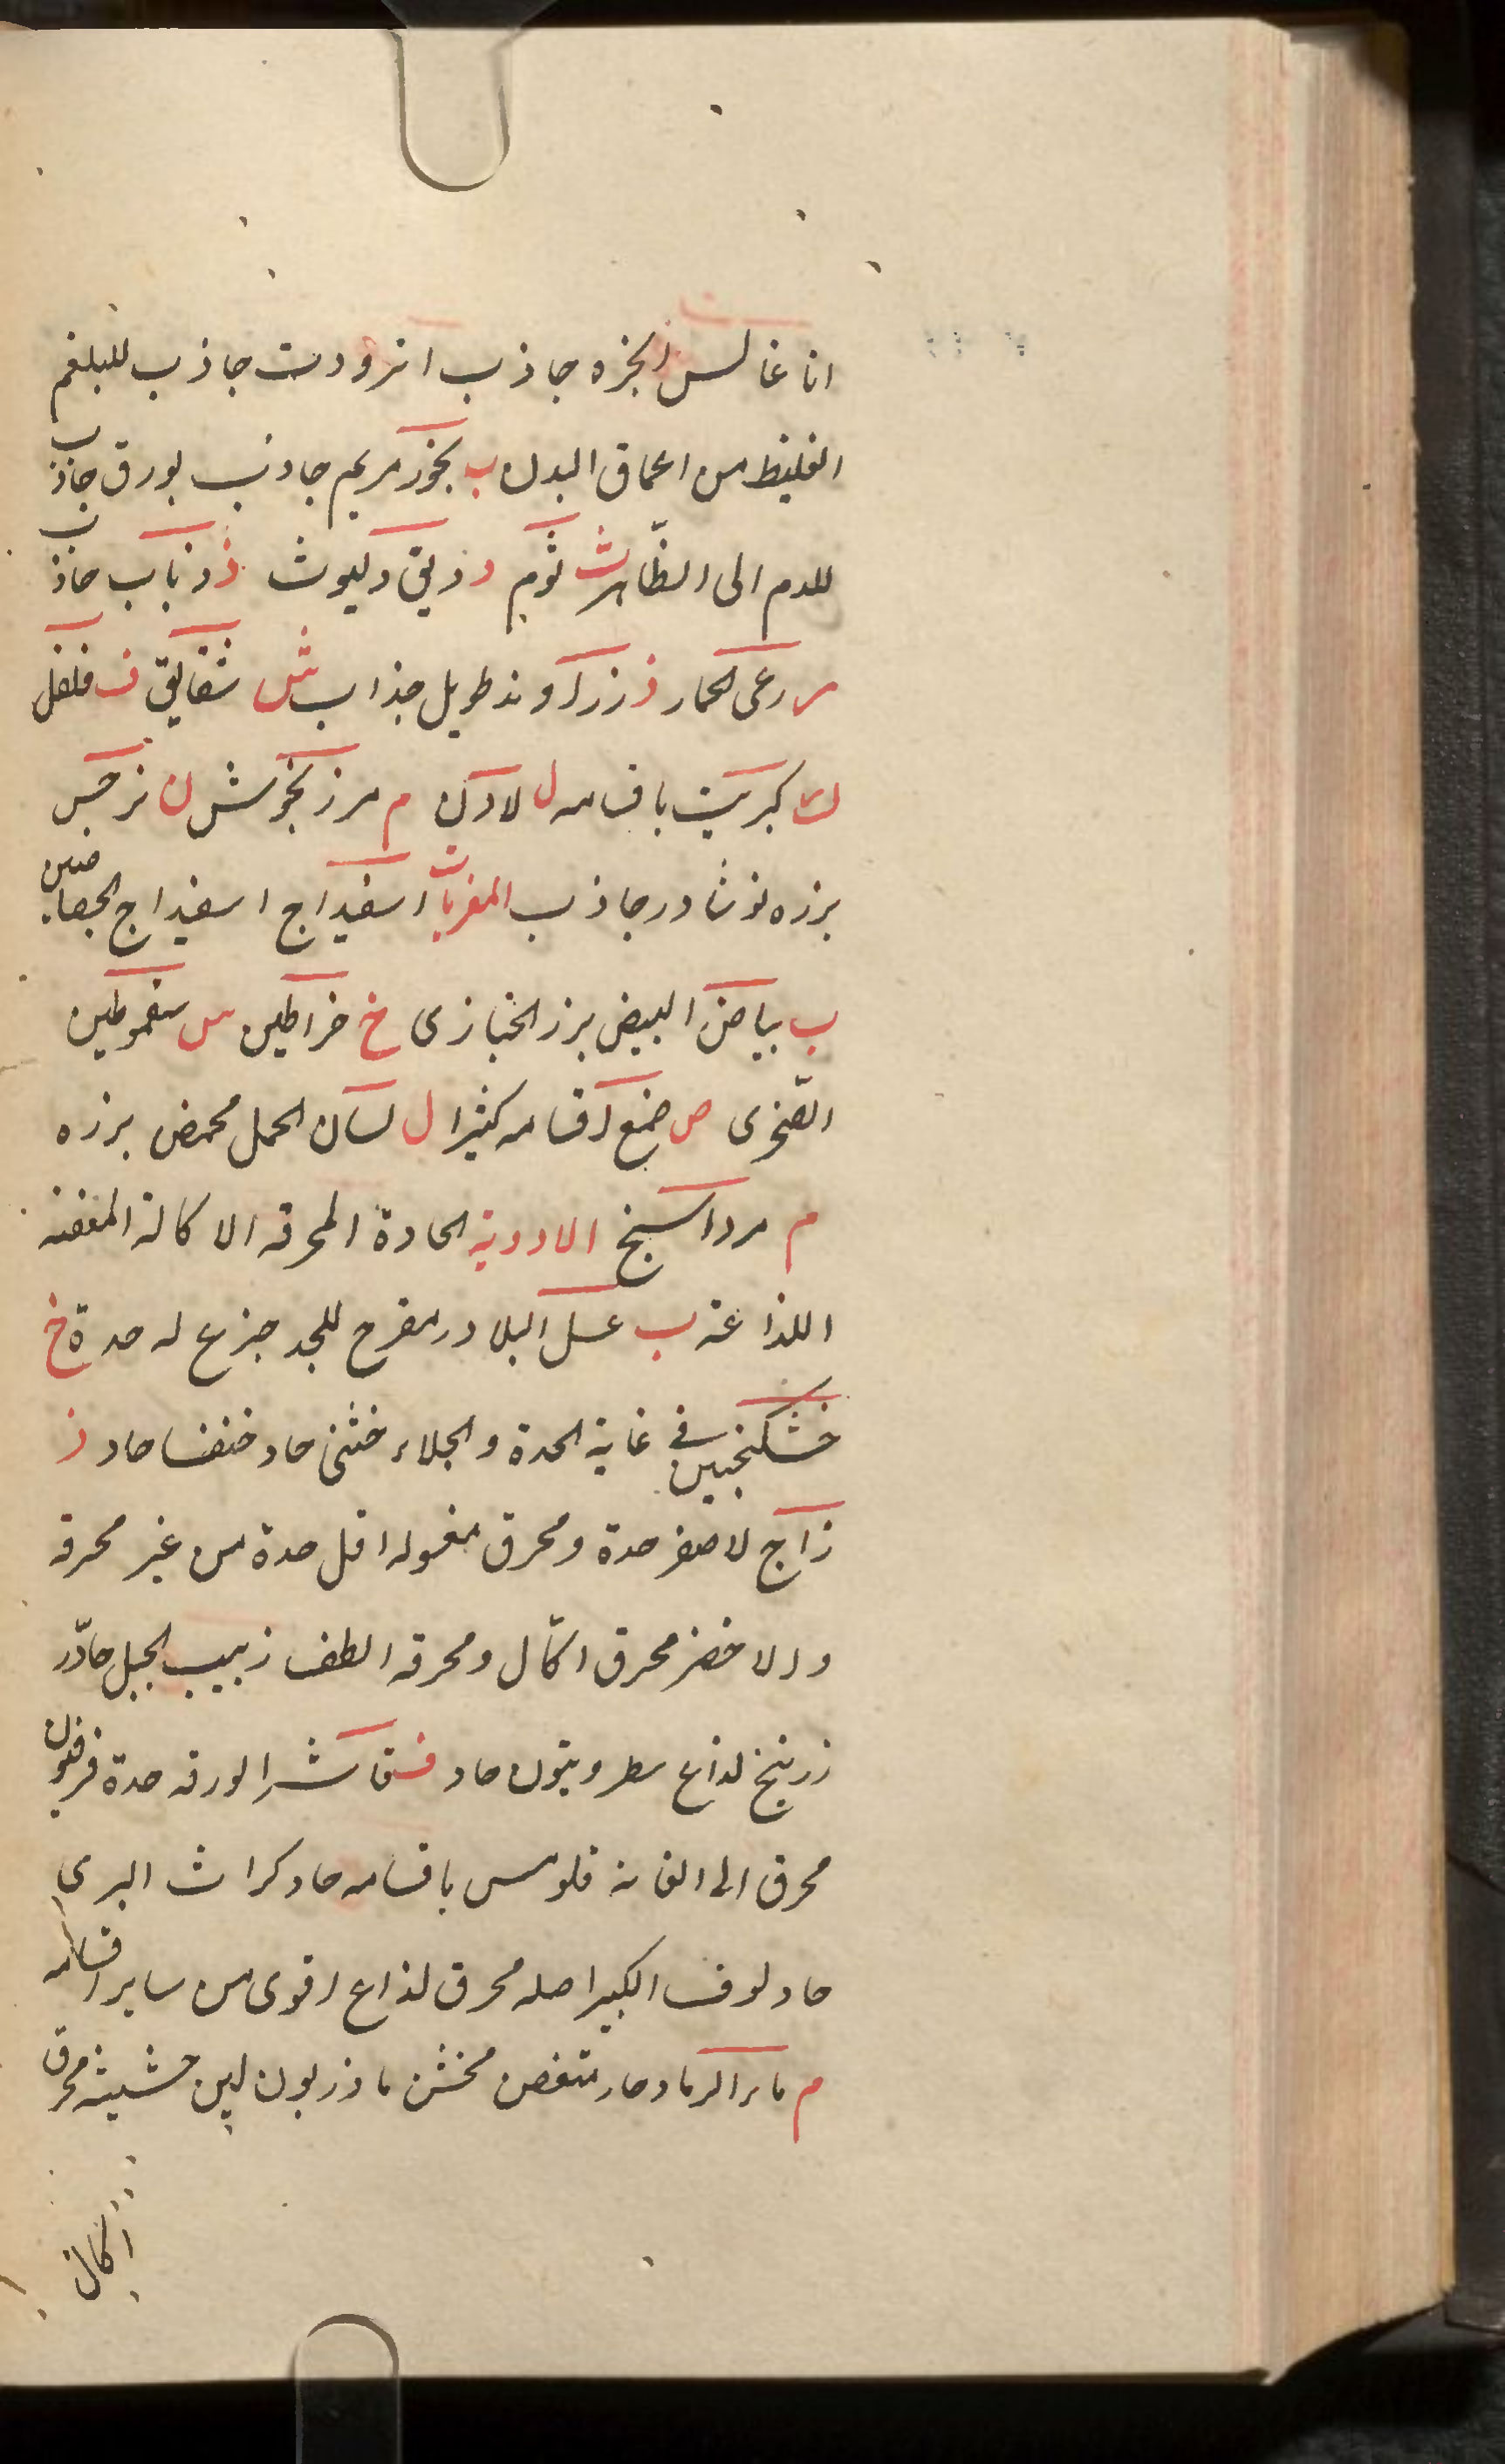 اناغالس انجزه جاذب انزودت جاذب للبلغم
الغليظ من اعماق البدن ب بخور مريم جاذب بورق جاذب
للدم الى الظاهر ث ثوم د دبق دليوث ذ ذباب جاذب
ر رعى الحمار ز زراوند طويل جذاب ش شقايق ف فلفل
ك كبريت باقسامه ل لادن م مرزنجوش ن نرجس
بزره نوشادر جاذب المغريات اسفيداج اسفيداج الجصاصين
ب بياض البيض بزر الخبازى خ خراطين س سقموطين
الصخرى ص صمغ اقسامه كثيرا ل لسان الحمل محمص بزره
م مرداسنج الادوية الحادة المحرقه الاكالة المعفنه
اللذاعة ب عسل البلادر مقرح للجلد جزع له حدة خ
خشكنجبين فى غاية الحدة والجلاء خنثى حاد خنفسا حاد ز
زاج لاصفر حدة ومحرق مغسوله اقل حدة من غير محرقه
والاخضر محرق اكال ومحرقه الطف زبيب الجبل حاد
زرنيخ لذاع سطرونيون حاد ف فاشرا لورقه حدة فرفيون
محرق الى الغاية قلومس باقسامه حاد كراث البرى
حاد لوف الكبير اصله محرق لذاع اقوى من ساير اقسامه
م ماء الرماد حار متعفن مخشن ماذريون لبن حشيشة محرق
اكال